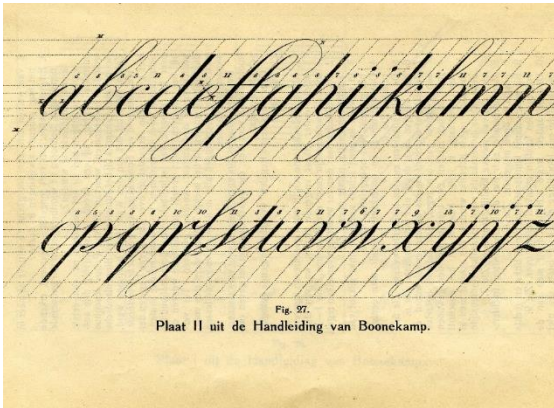 abcdeffghijklmn
opqrſstuvwxyÿz
Fig. 27.
Plaat II uit de Handleiding van Boonekamp.